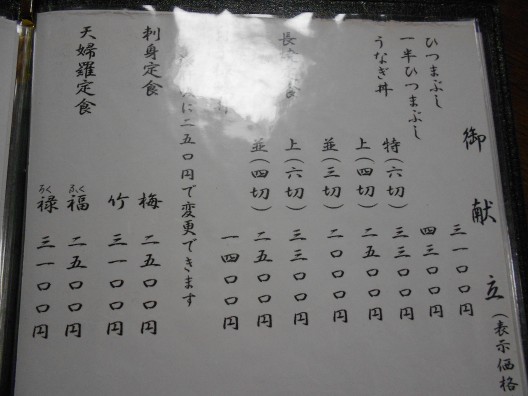 御献立(表示価格
ひつまぶし 三一〇〇円
一半ひつまぶし 四三〇〇円
うなぎ丼 特(六切) 三三〇〇円
上(四切) 二五〇〇円
並(三切) 二〇〇〇円
長 食 上(六切) 三三〇〇円
並(四切) 二五〇〇円
一四〇〇円
に二五〇円で変更できます
刺身定食 梅 二五〇〇円
竹 三一〇〇円
天婦羅定食 福 二五〇〇円
禄 三一〇〇円